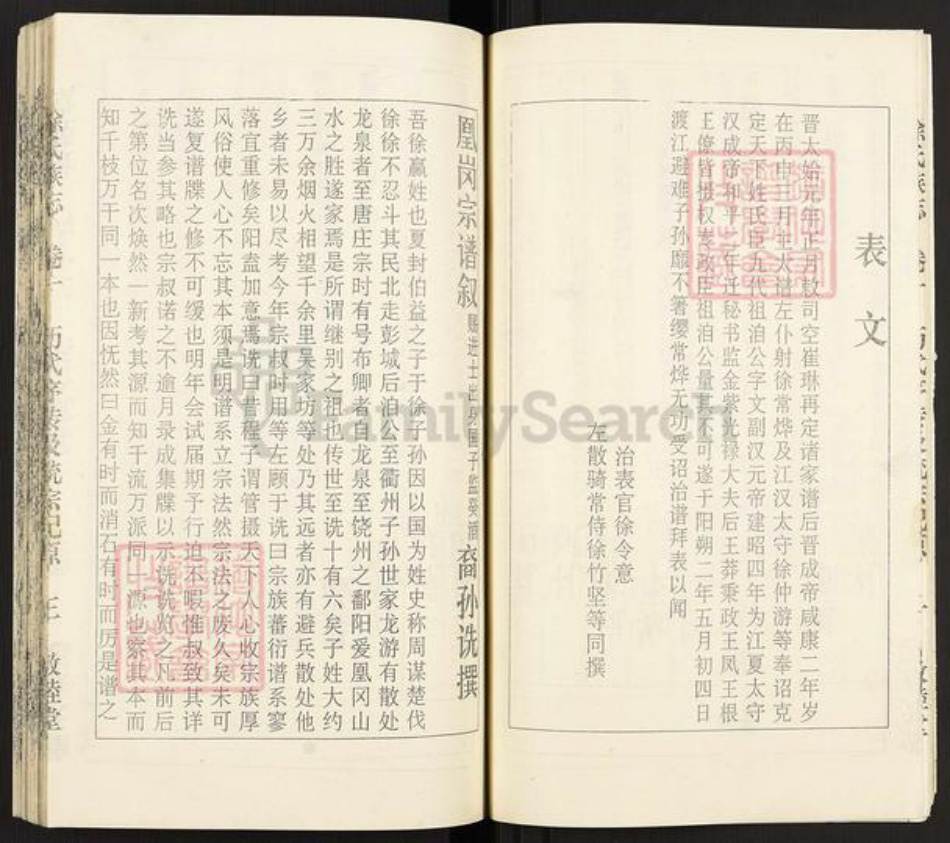 表文
晋太始元年正月敕司空崔琳再定诸家谱后晋成帝咸康二年岁
在丙申三月王太诸左仆射徐常烨及江汉太守徐仲游等奉诏克
定天下姓氏臣九代祖洎公字文副汉元帝建昭四年为江夏太守
汉成帝和平二年迁秘书监金紫光禄大夫后王莽秉政王凤王根
王僚皆摄权专政臣祖洎公量其不可遂于阳朔二年五月初四日
渡江避难子孙愿不箸缨常烨无功受诏治谱拜表以闻
治表官徐令意
左散骑常侍徐竹坚等同撰
凰岗宗谱叙 赐进士出身国子监祭酒 裔孙诜撰
吾徐嬴姓也夏封伯益之子于徐子孙因以国为姓史称周谋楚伐
徐徐不忍斗其民北走彭城后洎公至衢州子孙世家龙游有散处
龙泉者至唐庄宗时有号布卿者自龙泉至饶州之鄱阳爱凰冈山
水之胜遂家焉是所谓继别之祖也传世至诜十有六矣子姓大约
三万余烟火相望千余里吴家坊等处乃其远者亦有避兵散处他
乡者未易以尽考今年宗叔时用等左顾于诜曰宗族蕃衍谱系寥
落宜重修矣阳盍加意焉诜曰昔程子谓管摄天下人心收宗族厚
风俗使人心不忘其本须是明谱系立宗法然宗法之废久矣未可
遂复谱牒之修不可缓也明年会试届期予行迫不暇惟叔致其详
诜当参其略也宗叔诺之不逾月录成集牒以示诜诜览之凡前后
之第位名次焕然一新考其源而知千流万派同一源也察其本而
知千枝万干同一本也因怃然曰金有时而消石有时而厉是谱之
徐氏族志 卷一 历代序传及统宗纪原 三 敦睦堂
FamilySearch